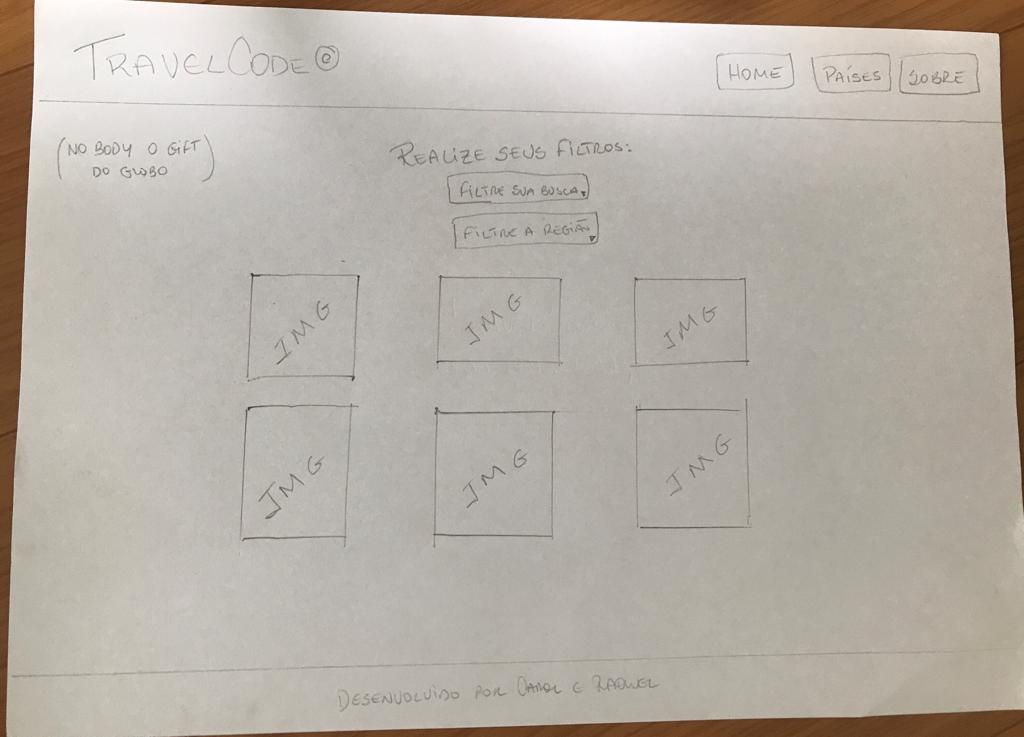 TRAVELCODE©
HOME
PAÍSES
SOBRE
(NO BODY O GIFT
DO GLOBO)
REALIZE SEUS FILTROS:
FILTRE SUA BUSCA
FILTRE A REGIÃO
IMG
IMG
IMG
IMG
IMG
IMG
DESENVOLVIDO POR CAROL E RAQUEL